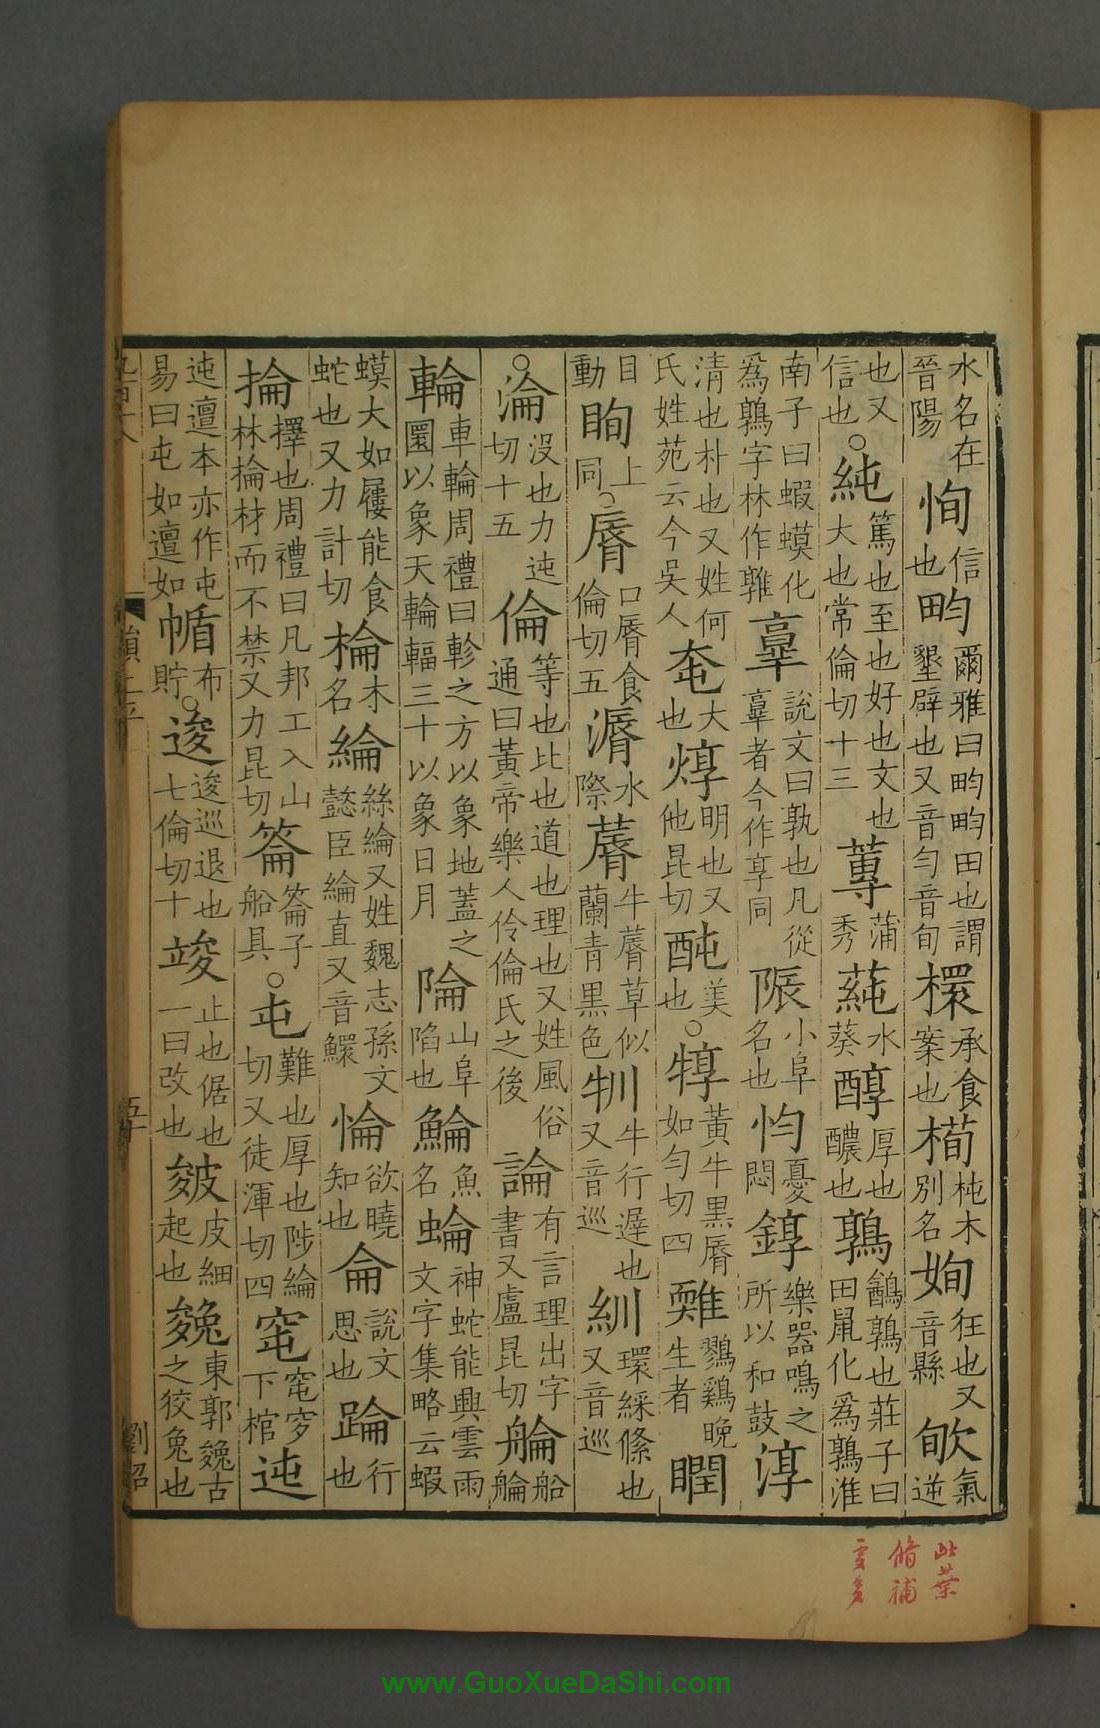 水名在晉陽 恂 信也 畇 爾雅曰畇畇田也謂墾辟也又音勻音旬 檈 承食案也 橁 杶木別名 姰 狂也又音縣 㰬 氣逆
也又信也○純 篤也至也好也文也大也常倫切十三 蓴 蒲秀 蒓 水葵 醇 厚也醲也 鶉 鷂鶉也莊子曰田鼠化爲鶉淮
南子曰蝦蟇化爲鶉字林作雜 𦎫 說文曰孰也凡從𦎫者今作享同 陙 小阜名也 忳 憂悶 錞 樂器鳴之所以和鼓 淳
清也朴也又姓何氏姓苑云今吳人 奄 大也 焞 明也又他昆切 䣩 美也○犉 黃牛黑脣如勻切四 䨲 鷚鷄晚生者 瞤
目動 眴 上同○脣 口脣食倫切五 漘 水際 蓴 牛蓴草似蘭青黑色 䢫 牛行遲也又音巡 紃 環綵絛也又音巡
○淪 沒也力迍切十五 倫 等也比也道也理也又姓風俗通曰黃帝樂人伶倫氏之後 論 有言理出字書又盧昆切 艑 船艑
輪 車輪周禮曰軫之方以象地蓋之圜以象天輪輻三十以象日月 陯 山阜陷也 鯩 魚名 蜦 神蛇能興雲雨文字集略云蝦
蟇大如屨能食蛇也又力計切 棆 木名 綸 絲綸又姓魏志孫文懿臣綸直又音鰥 惀 欲曉知也 侖 說文思也 踚 行也
掄 擇也周禮曰凡邦工入山林掄材而不禁又力昆切 䈁 䈁子船具○屯 難也厚也陟綸切又徒渾切四 窀 窀穸下棺 迍
迍邅本亦作屯易曰屯如邅如 㡒 布貯○逡 逡巡退也七倫切十 竣 止也倨也一曰改也 皴 皮細起也 㕙 東郭㕙古之狡兔也
劉昭
此葉
修補